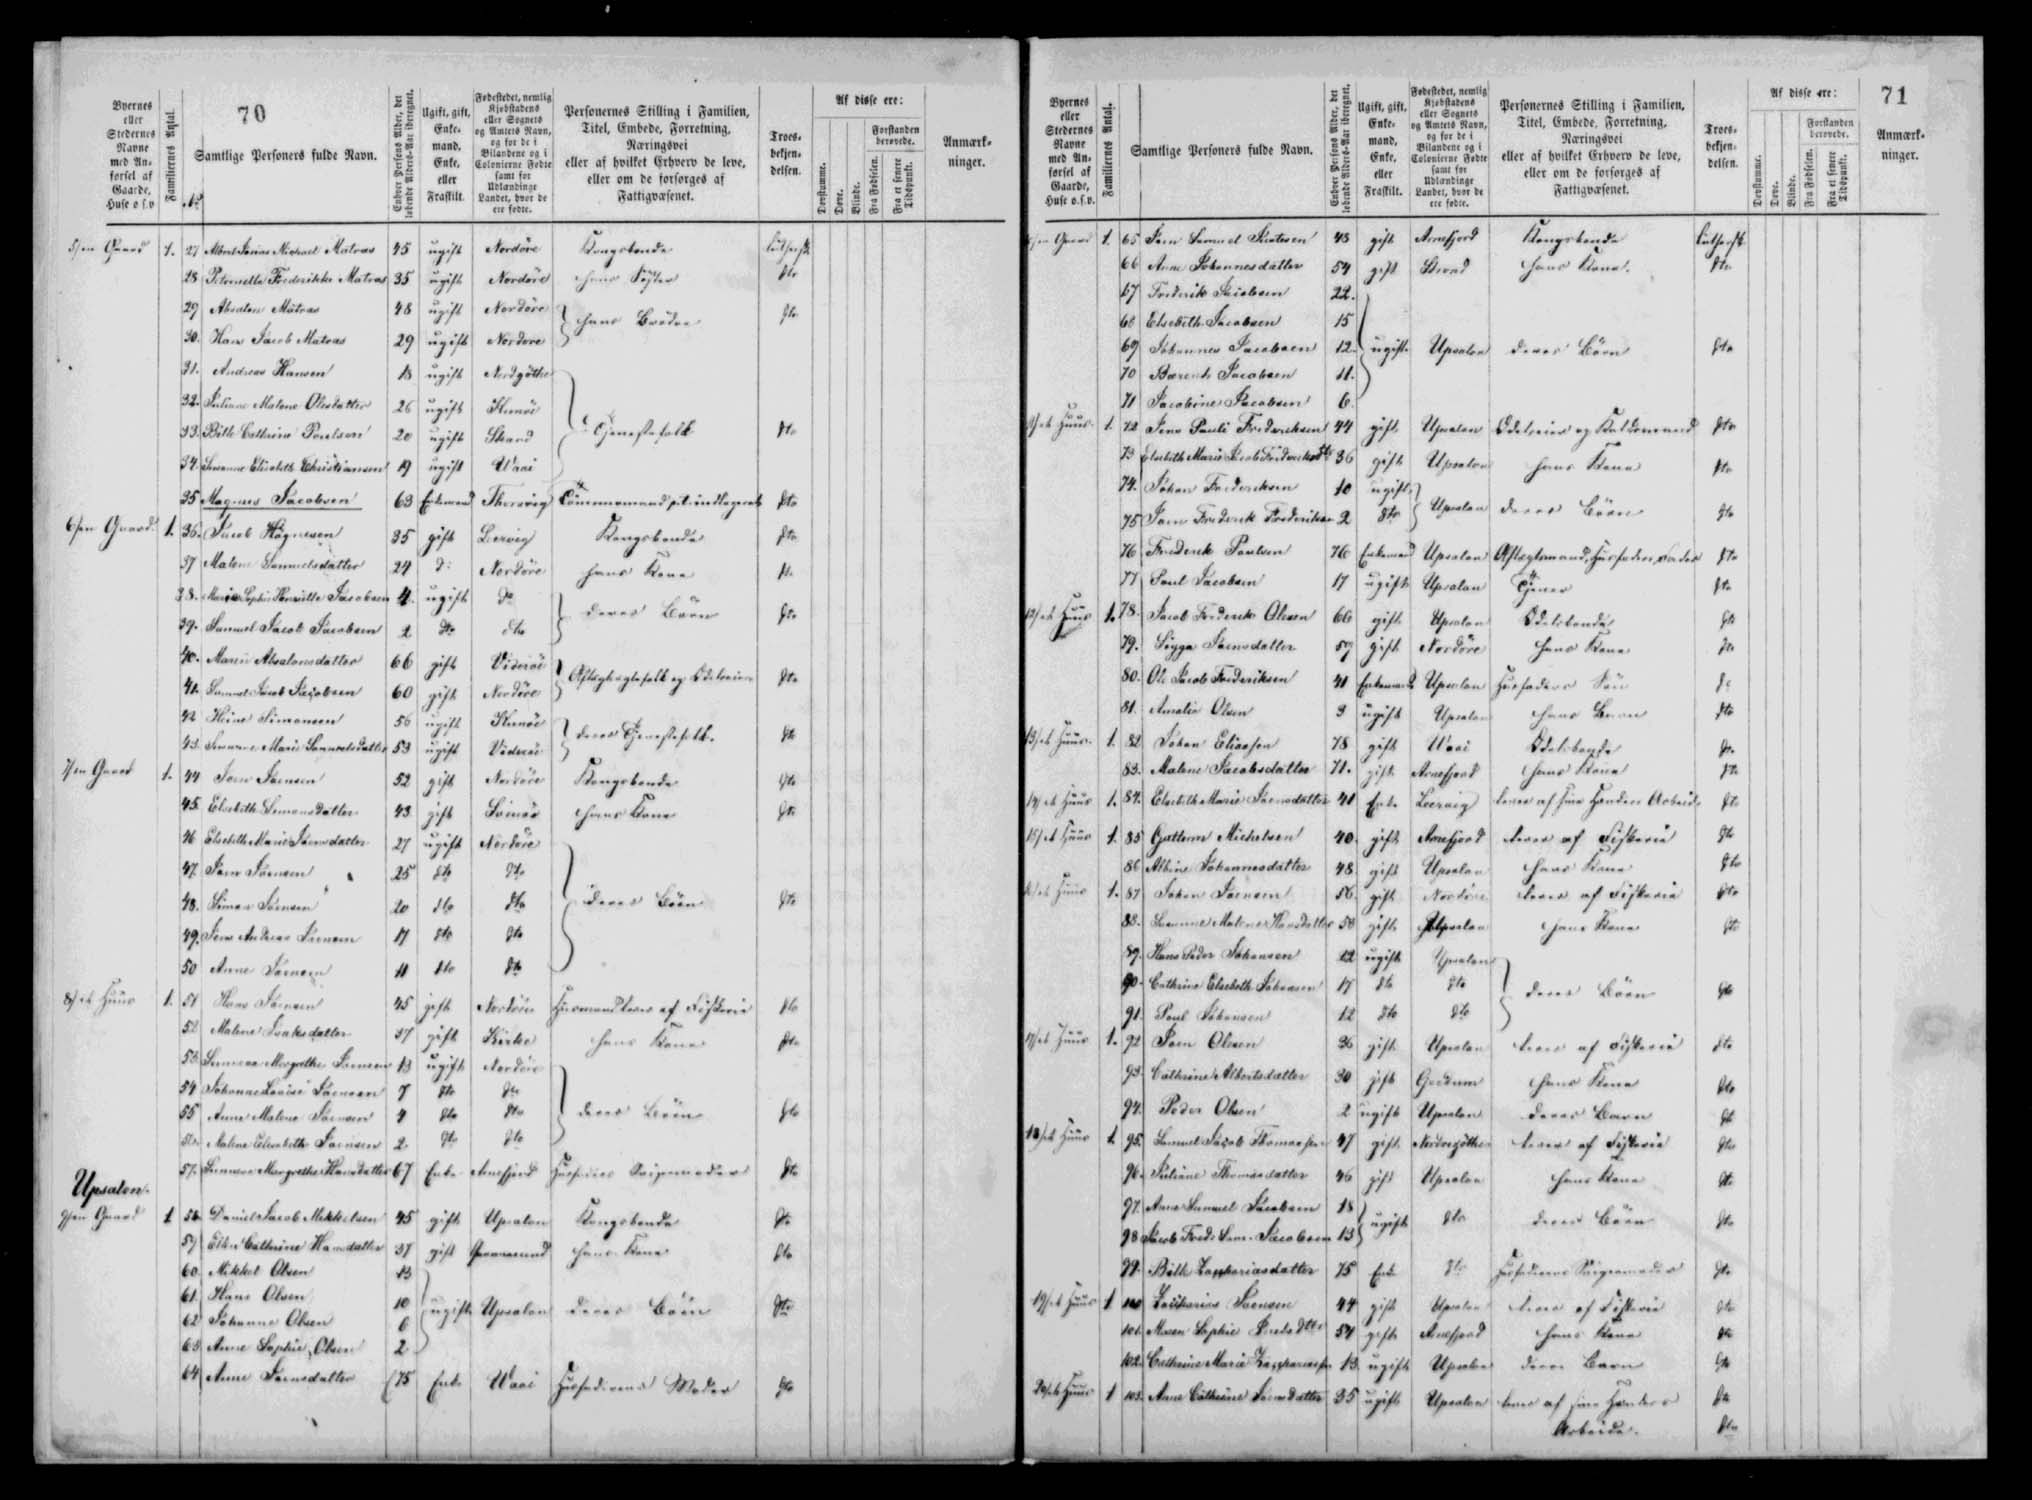 70
Byernes eller Stedernes Navne med Anførsel af Gaarde, Huse o.s.v.
Familiernes Antal.
Samtlige Personers fulde Navn.
Enhver Persons Alder, det løbende Alders-Aar iberegnet.
Ugift, gift, Enkemand, Enke, eller Fraskilt.
Fødestedet, nemlig Kjøbstadens eller Sognets og Amtets Navn, og for de i Bilandene og i Colonierne Fødte samt for Udlændinge Landet, hvor de ere fødte.
Personernes Stilling i Familien, Titel, Embede, Forretning, Næringsvei eller af hvilket Erhverv de leve, eller om de forsørges af Fattigvæsenet.
Troesbekjendelsen.
Af disse ere:
Døvstumme.
Døve.
Blinde.
Forstanden berøvede.
Fra Fødselen.
Fra et senere Tidspunkt.
Anmærkninger.
5/ en Gaard 1. 27 Michael Matras 45 ugift Nordöre Kongsbonde luthersk
28 Petronella Frederikke Matras 35 ugift Nordöre hans Söster dto
29 Absalon Matras 48 ugift Nordöre hans Brödre dto
30. Hans Jacob Matras 29 ugift Nordöre
31. Andreas Hansen 18 ugift
32. Juliane Malene Olesdatter 26 ugift Kunöe Tjenestefolk dto
33. Bille Cathrine Poulsen 20 ugift Strand
34. Susanne Elisabeth Christiansen 19 ugift Waai
35 Magnus Jacobsen 63 Enkemand dto
6/ en Gaard 1. 36. Jacob Högnesen 35 gift Leervig Kongsbonde dto
37 Malene Samuelsdatter 24 d: Nordöre hans Kone dto
38. Marie Sophie Henriette Jacobsen 4. ugift do deres Börn dto
39. Samuel Jacob Jacobsen 2 dto dto
40. Maren Absalonsdatter 66 gift Videröe Aftægtsfolk og dto
41. Samuel Jacob Jacobsen 60 gift Nordöre
42 Heine Simonsen 56 ugift Kunöe deres Tjenestefolk. dto
43. Susanne Marie Samuelsdatter 53 ugift Videröe
7/ en Gaard 1. 44 Joen Joensen 52 gift Nordöre Kongsbonde dto
45. Elsebeth Simonsdatter 43 gift Svinöe hans Kone dto
46 Elsebeth Marie Joensdatter 27 ugift Nordöre
47. Joen Joensen 25 dto dto
48. Simon Joensen 20 dto dto deres Börn dto
49. Jens Andreas Joensen 17 dto dto
50 Anne Joensen 11 dto dto
8/ et Huus 1. 51 Hans Joensen 45 gift Nordöre Huusmand lever af Fiskerie dto
52 Malene Isaksdatter 37 gift Kirke hans Kone dto
53. Susanne Margrethe Joensen 13 ugift Nordöre
54 Johanne Louise Joensen 7 dto dto
55 Anne Malene Joensen 4 dto dto deres Börn dto
56. Malene Elisabeth Joensen 2 dto dto
57. Susanne Margrethe Hansdatter 67 Enke Arnefjord Huusfaders Svigermoder dto
Upsalen.
9/ en Gaard 1 58. Daniel Jacob Mikkelsen 45 gift Upsalen Kongsbonde dto
59 Ellen Cathrine Hansdatter 37 gift hans Kone dto
60. Mikkel Olsen 13
61. Hans Olsen 10 ugift Upsalen deres Börn dto
62 Johanne Olsen 6
63 Anne Sophie Olsen 2
64 Anne Joensdatter 75 Enke Waai Huusfaderens Moder dto
71
Byernes eller Stedernes Navne med Anførsel af Gaarde, Huse o.s.v.
Familiernes Antal.
Samtlige Personers fulde Navn.
Enhver Persons Alder, det løbende Alders-Aar iberegnet.
Ugift, gift, Enkemand, Enke, eller Fraskilt.
Fødestedet, nemlig Kjøbstadens eller Sognets og Amtets Navn, og for de i Bilandene og i Colonierne Fødte samt for Udlændinge Landet, hvor de ere fødte.
Personernes Stilling i Familien, Titel, Embede, Forretning, Næringsvei eller af hvilket Erhverv de leve, eller om de forsørges af Fattigvæsenet.
Troesbekjendelsen.
Af disse ere:
Døvstumme.
Døve.
Blinde.
Forstanden berøvede.
Fra Fødselen.
Fra et senere Tidspunkt.
Anmærkninger.
en Gaard 1. 65 Joen Samuel 48 gift Arnefjord Kongsbonde luthersk
66 Anne Johannesdatter 54 gift Strand hans Kone. dto
67 Frederik Jacobsen 22.
68 Elsebeth Jacobsen 15
69 Johannes Jacobsen 12 ugift Upsalen deres Börn dto
70 Barent Jacobsen 11.
71 Jacobine Jacobsen 6.
et Huus 1. 72 Jens Pauli Frederiksen 44 gift Upsalen Odelseier og dto
73 Elsebeth Marie Jacob Frederiks dtr 36 gift Upsalen hans Kone dto
74. Johan Frederiksen 10 ugift Upsalen deres Börn dto
75 Joen Frederik Frederiksen 2 dto
76. Frederik Poulsen 76 Enkemand Upsalen Aftægtsmand, Huusfaders Fader dto
77 Poul Jacobsen 17 ugift Upsalen Tjener dto
12/ et Huus 1. 78. Jacob Frederik Olsen 66 gift Upsalen Odelsbonde dto
79. Sigga Joensdatter 59 gift Nordöre hans Kone dto
80. Ole Jacob Frederiksen 41 Enkemand Upsalen Huusfaders Sön do
81. Amalie Olsen 3 ugift Upsalen hans Barn dto
13/ et Huus 1. 82 Johan Eliassen 78 gift Waai Odelsbonde dto
83. Malene Jacobsdatter 71. gift Arnefjord hans Kone dto
14/ et Huus 1. 84. Elsebeth Marie Joensdatter 41 Enke Leervig lever af sine Hænders Arbeide dto
15/ et Huus 1. 85 Guttorm Michelsen 40. gift Arnefjord lever af Fiskerie dto
86 Albine Johannesdatter 48 gift Upsalen hans Kone dto
16/ et Huus 1. 87 Johan Joensen 56. gift Nordöre lever af Fiskerie dto
88. Susanne Malene Hansdatter 50 gift Upsalen hans Kone dto
89. Hans Peder Johansen 22 ugift Upsalen
90. Cathrine Elsebeth Johansen 17 dto dto deres Börn dto
91. Poul Johansen 12 dto dto
17/ et Huus 1. 92 Joen Olsen 36 gift Upsalen lever af Fiskerie dto
93. Cathrine Albertsdatter 30 gift hans Kone dto
94. Peder Olsen 2 ugift Upsalen deres Barn dto
18/ et Huus 1. 95. Samuel Jacob Thomassen 47 gift lever af Fiskerie dto
96. Juliane Thomasdatter 46 gift Upsalen hans Kone dto
97. Anne Samuel Jacobsen 18 ugift dto deres Börn dto
98 Jacob Fredr. Sam. Jacobsen 13
99. Bille Zachariasdatter 75 Enke dto Huusfaderens Svigermoder dto
19/ et Huus 1 100 Zacharias Joensen 44 gift Upsalen lever af Fiskerie dto
101. Maren Sophie dtr 54 gift Arnefjord hans Kone dto
102. Cathrine Marie 13. ugift Upsalen deres Barn dto
20/ et Huus 1 103. Anne Cathrine Joensdatter 35 ugift Upsalen lever af sine Hænders dto
Arbeide. dto